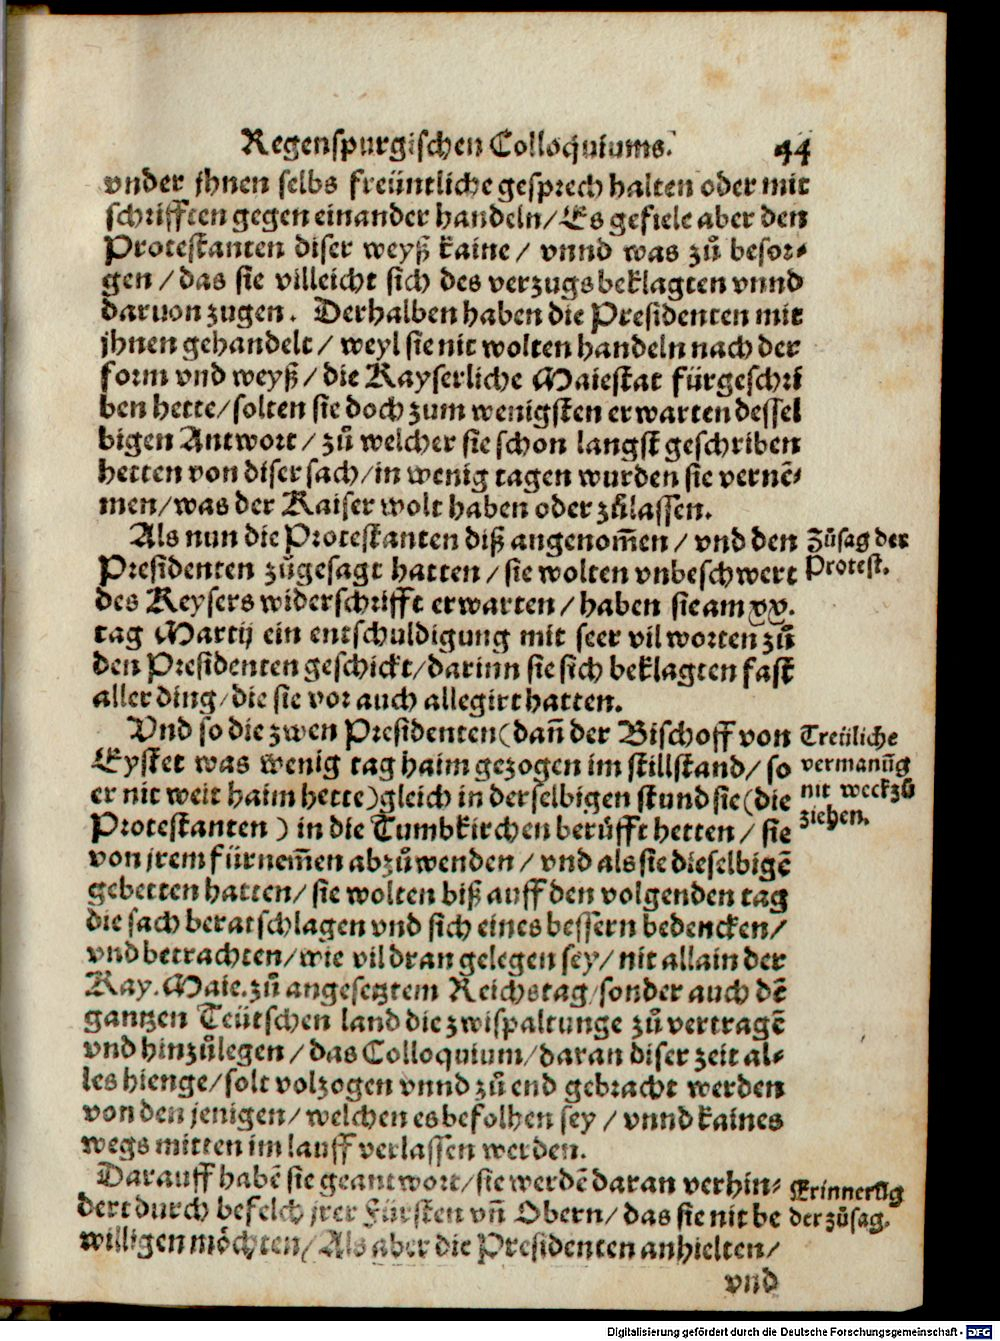 Regenspurgischen Colloquiums. 44
vnder jhnen selbs freüntliche gesprech halten oder mit
schrifften gegen einander handeln/ Es gefiele aber den
Protestanten diser weyß kaine/ vnnd was zů besor-
gen/ das sie villeicht sich des verzugs beklagten vnnd
daruon zugen. Derhalben haben die Presidenten mit
jhnen gehandelt/ weyl sie nit wolten handeln nach der
form vnd weyß/ die Kayserliche Maiestat fürgeschri
ben hette/ solten sie doch zum wenigsten erwarten dessel
bigen Antwort/ zů welcher sie schon langst geschriben
hetten von diser sach/ in wenig tagen wurden sie vernē-
men/ was der Kaiser wolt haben oder zůlassen.
Als nun die Protestanten diß angenom̄en/ vnd den
Zůsag der
Presidenten zůgesagt hatten/ sie wolten vnbeschwert
Protest.
des Keysers widerschrifft erwarten/ haben sie am xx.
tag Martij ein entschuldigung mit seer vil worten zů
den Presidenten geschickt/ darinn sie sich beklagten fast
aller ding/ die sie vor auch allegirt hatten.
Vnd so die zwen Presidenten (dan̄ der Bischoff von
Treüliche
Eystet was wenig tag haim gezogen im stillstand/ so
vermanūg
er nit weit haim hette) gleich in derselbigen stund sie (die
nit weck zů
Protestanten) in die Tumbkirchen berůfft hetten/ sie
ziehen.
von jrem fürnem̄en abzůwenden/ vnd als sie dieselbigē
gebetten hatten/ sie wolten biß auff den volgenden tag
die sach beratschlagen vnd sich eines bessern bedencken/
vnd betrachten/ wie vil dran gelegen sey/ nit allain der
Kay. Maie. zů angesetztem Reichstag/ sonder auch dē
gantzen Teütschen land die zwispaltunge zů vertragē
vnd hinzůlegen/ das Colloquium/ daran diser zeit al-
les hienge/ solt volzogen vnnd zů end gebracht werden
von den jenigen/ welchen es befolhen sey/ vnnd kaines
wegs mitten im lauff verlassen werden.
Darauff habē sie geantwort/ sie werdē daran verhin-
Erinnerūg
dert durch befelch jrer Fürsten vn̄ Obern/ das sie nit be
der zůsag.
willigen möchten/ Als aber die Presidenten anhielten/
vnd
Digitalisierung gefördert durch die Deutsche Forschungsgemeinschaft - DFG